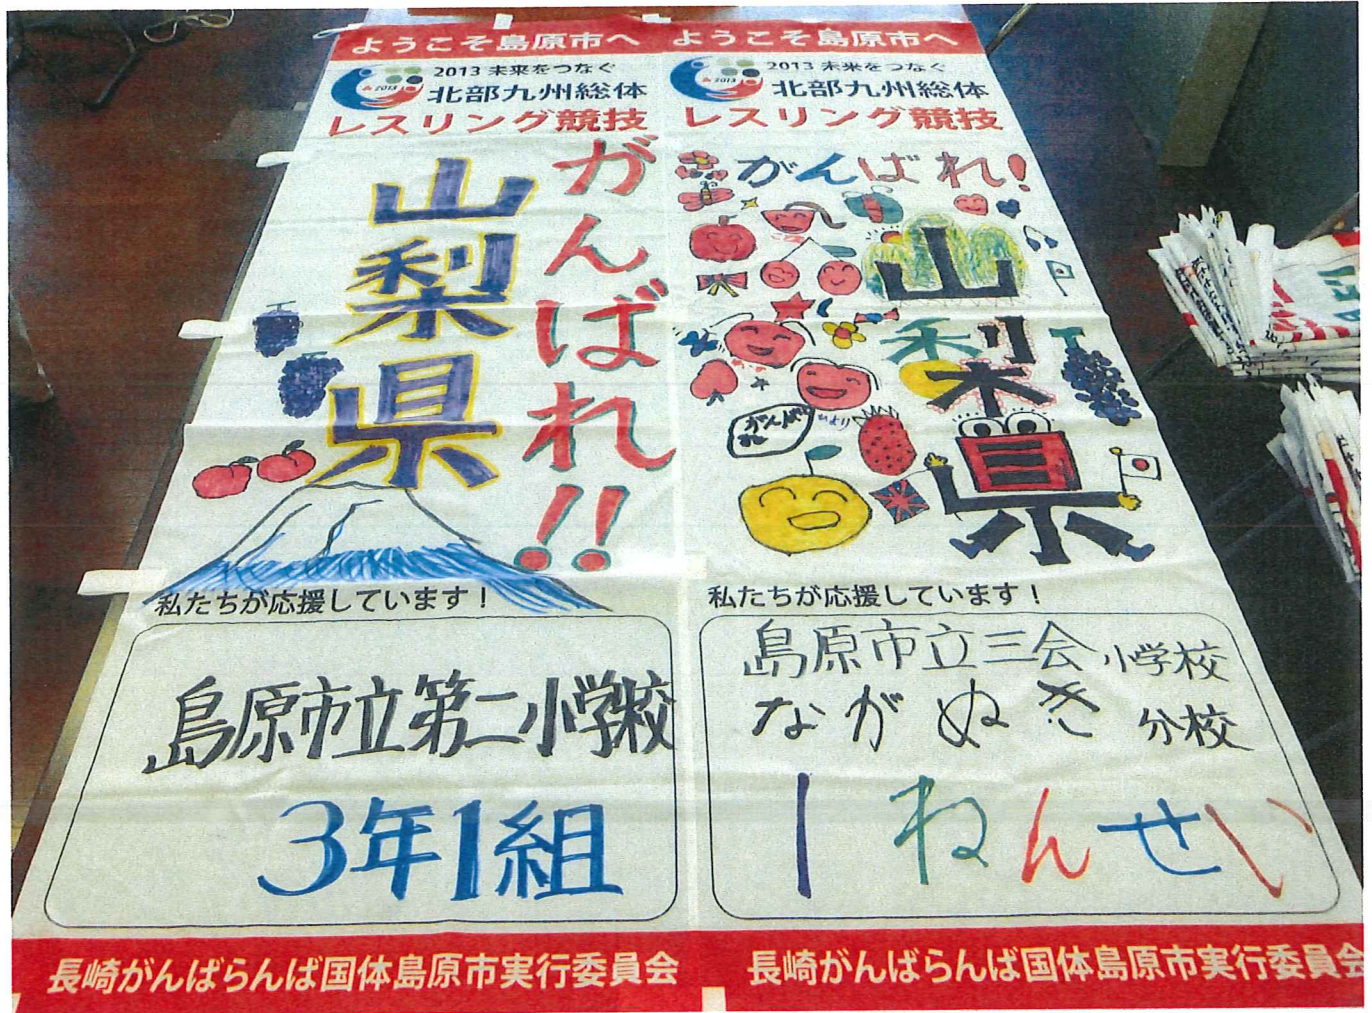 ようこそ島原市へ
2013
2013 未来をつなぐ
北部九州総体
レスリング競技
がんばれ!!
山梨県
私たちが応援しています!
島原市立第二小学校
3年1組
長崎がんばらんば国体島原市実行委員会
ようこそ島原市へ
2013
2013 未来をつなぐ
北部九州総体
レスリング競技
がんばれ!
山梨県
がんばれ
ひより
私たちが応援しています!
島原市立三会小学校
ながぬき分校
1ねんせい
長崎がんばらんば国体島原市実行委員会